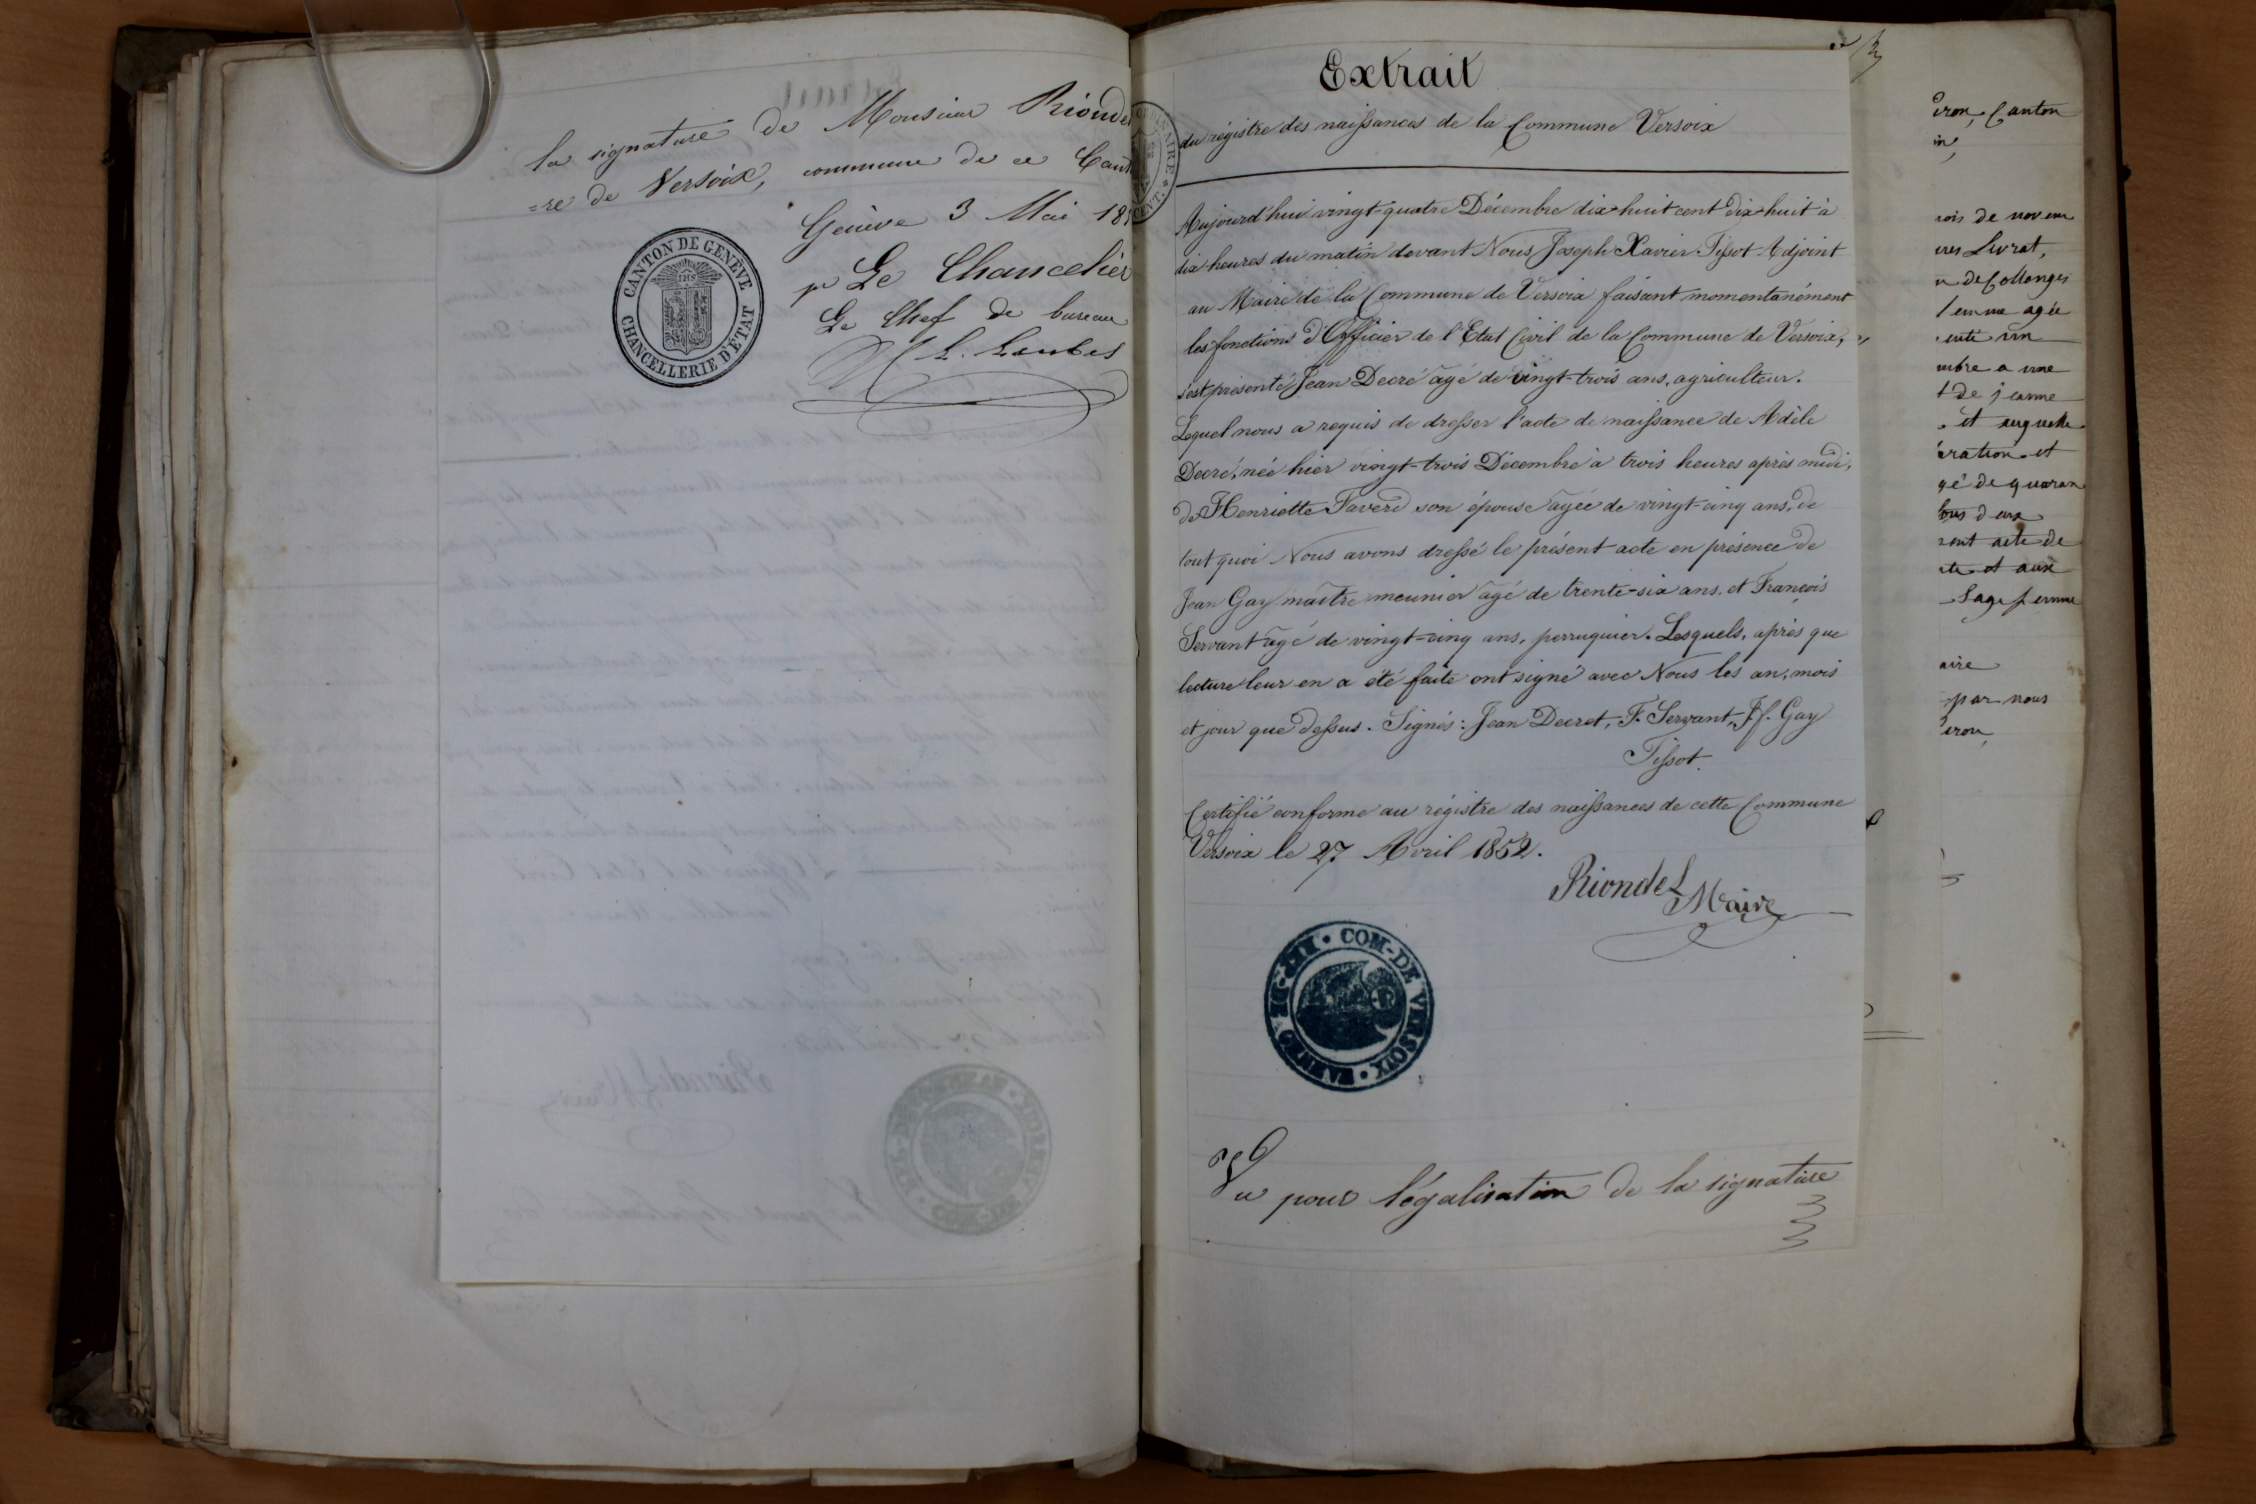 la signature de Monsieur Rionde
=re de Versoix, commune de ce Cant
Genève 3 Mai 185
pr Le Chancelier
Le Chef de bureau
CANTON DE GENÈVE
CHANCELLERIE D'ÉTAT
Extrait
du régistre des naissances de la Commune Versoix
Aujourd'hui vingt-quatre Décembre dix-huit cent dix-huit à
dix heures du matin devant Nous Joseph Xavier Tissot Adjoint
au Maire de la Commune de Versoix faisant momentanément
les fonctions d'Officier de l'Etat Civil de la Commune de Versoix,
s'est présenté Jean Decré âgé de vingt-trois ans, agriculteur.
Lequel nous a requis de dresser l'acte de naissance de Adèle
Decré, née hier vingt-trois Décembre à trois heures après midi,
de Henriette Favere son épouse âgée de vingt-cinq ans, de
tout quoi Nous avons dressé le présent acte en présence de
Jean Gay maître meunier âgé de trente-six ans, et François
Servant âgé de vingt-cinq ans, perruquier. Lesquels, après que
lecture leur en a été faite ont signé avec Nous les an, mois
et jour que dessus. Signés: Jean Decret, F. Servant, Jf. Gay
Tissot.
Certifié conforme au régistre des naissances de cette Commune
Versoix le 27 Avril 1852.
Riondel
Maire
COM-DE VERSOIX
Vu pour légalisation de la signature
iron, Canton
in,
rois de novem
res Livrat,
de Collonges
femme agée
enté un
mbre a une
t de jeanne
et auguste
ration et
gé de quaran
tous deux
sent acte de
et aux
Sage femme
aire
par nous
iron